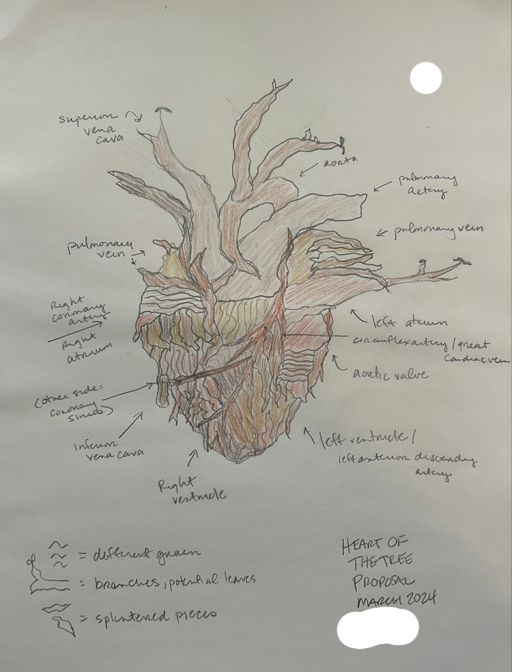 superior
vena
cava
aorta
pulmonary
artery
pulmonary vein
pulmonary
vein
Right
coronary
artery
Right
atrium
left atrium
circumflex artery/great
cardiac vein
aortic valve
(other side=
coronary
sinus)
Inferior
vena cava
left ventricle/
left anterior descending
artery
Right
ventricle
= different grain
= branches, potential leaves
= splintered pieces
HEART OF
THE TREE
PROPOSAL
MARCH 2024